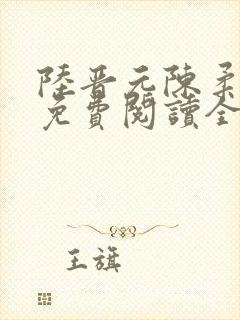 陸晉元陳柔
免費閱讀全
王旗